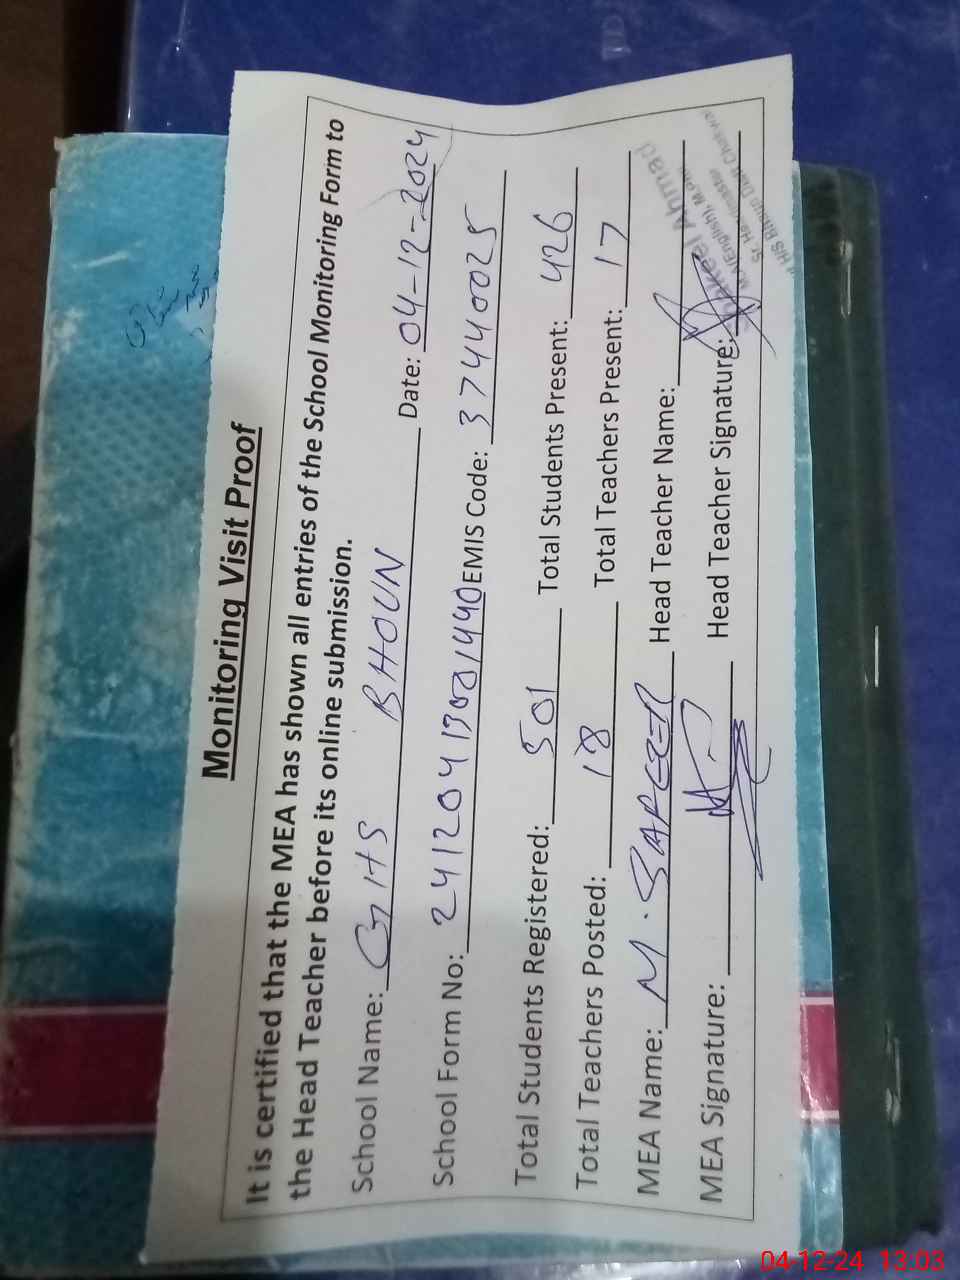 Monitoring Visit Proof
It is certified that the MEA has shown all entries of the School Monitoring Form to
the Head Teacher before its online submission.
School Name: GHS BHOUN Date: 04-12-2024
School Form No: EMIS Code: 37440025
Total Students Registered: 501 Total Students Present: 426
Total Teachers Posted: 18 Total Teachers Present: 17
MEA Name: M. SAFEER Head Teacher Name:
MEA Signature: Head Teacher Signature:
Ahmad
(English), M.Phil
Sr. Headmaster
04-12-24 13:03